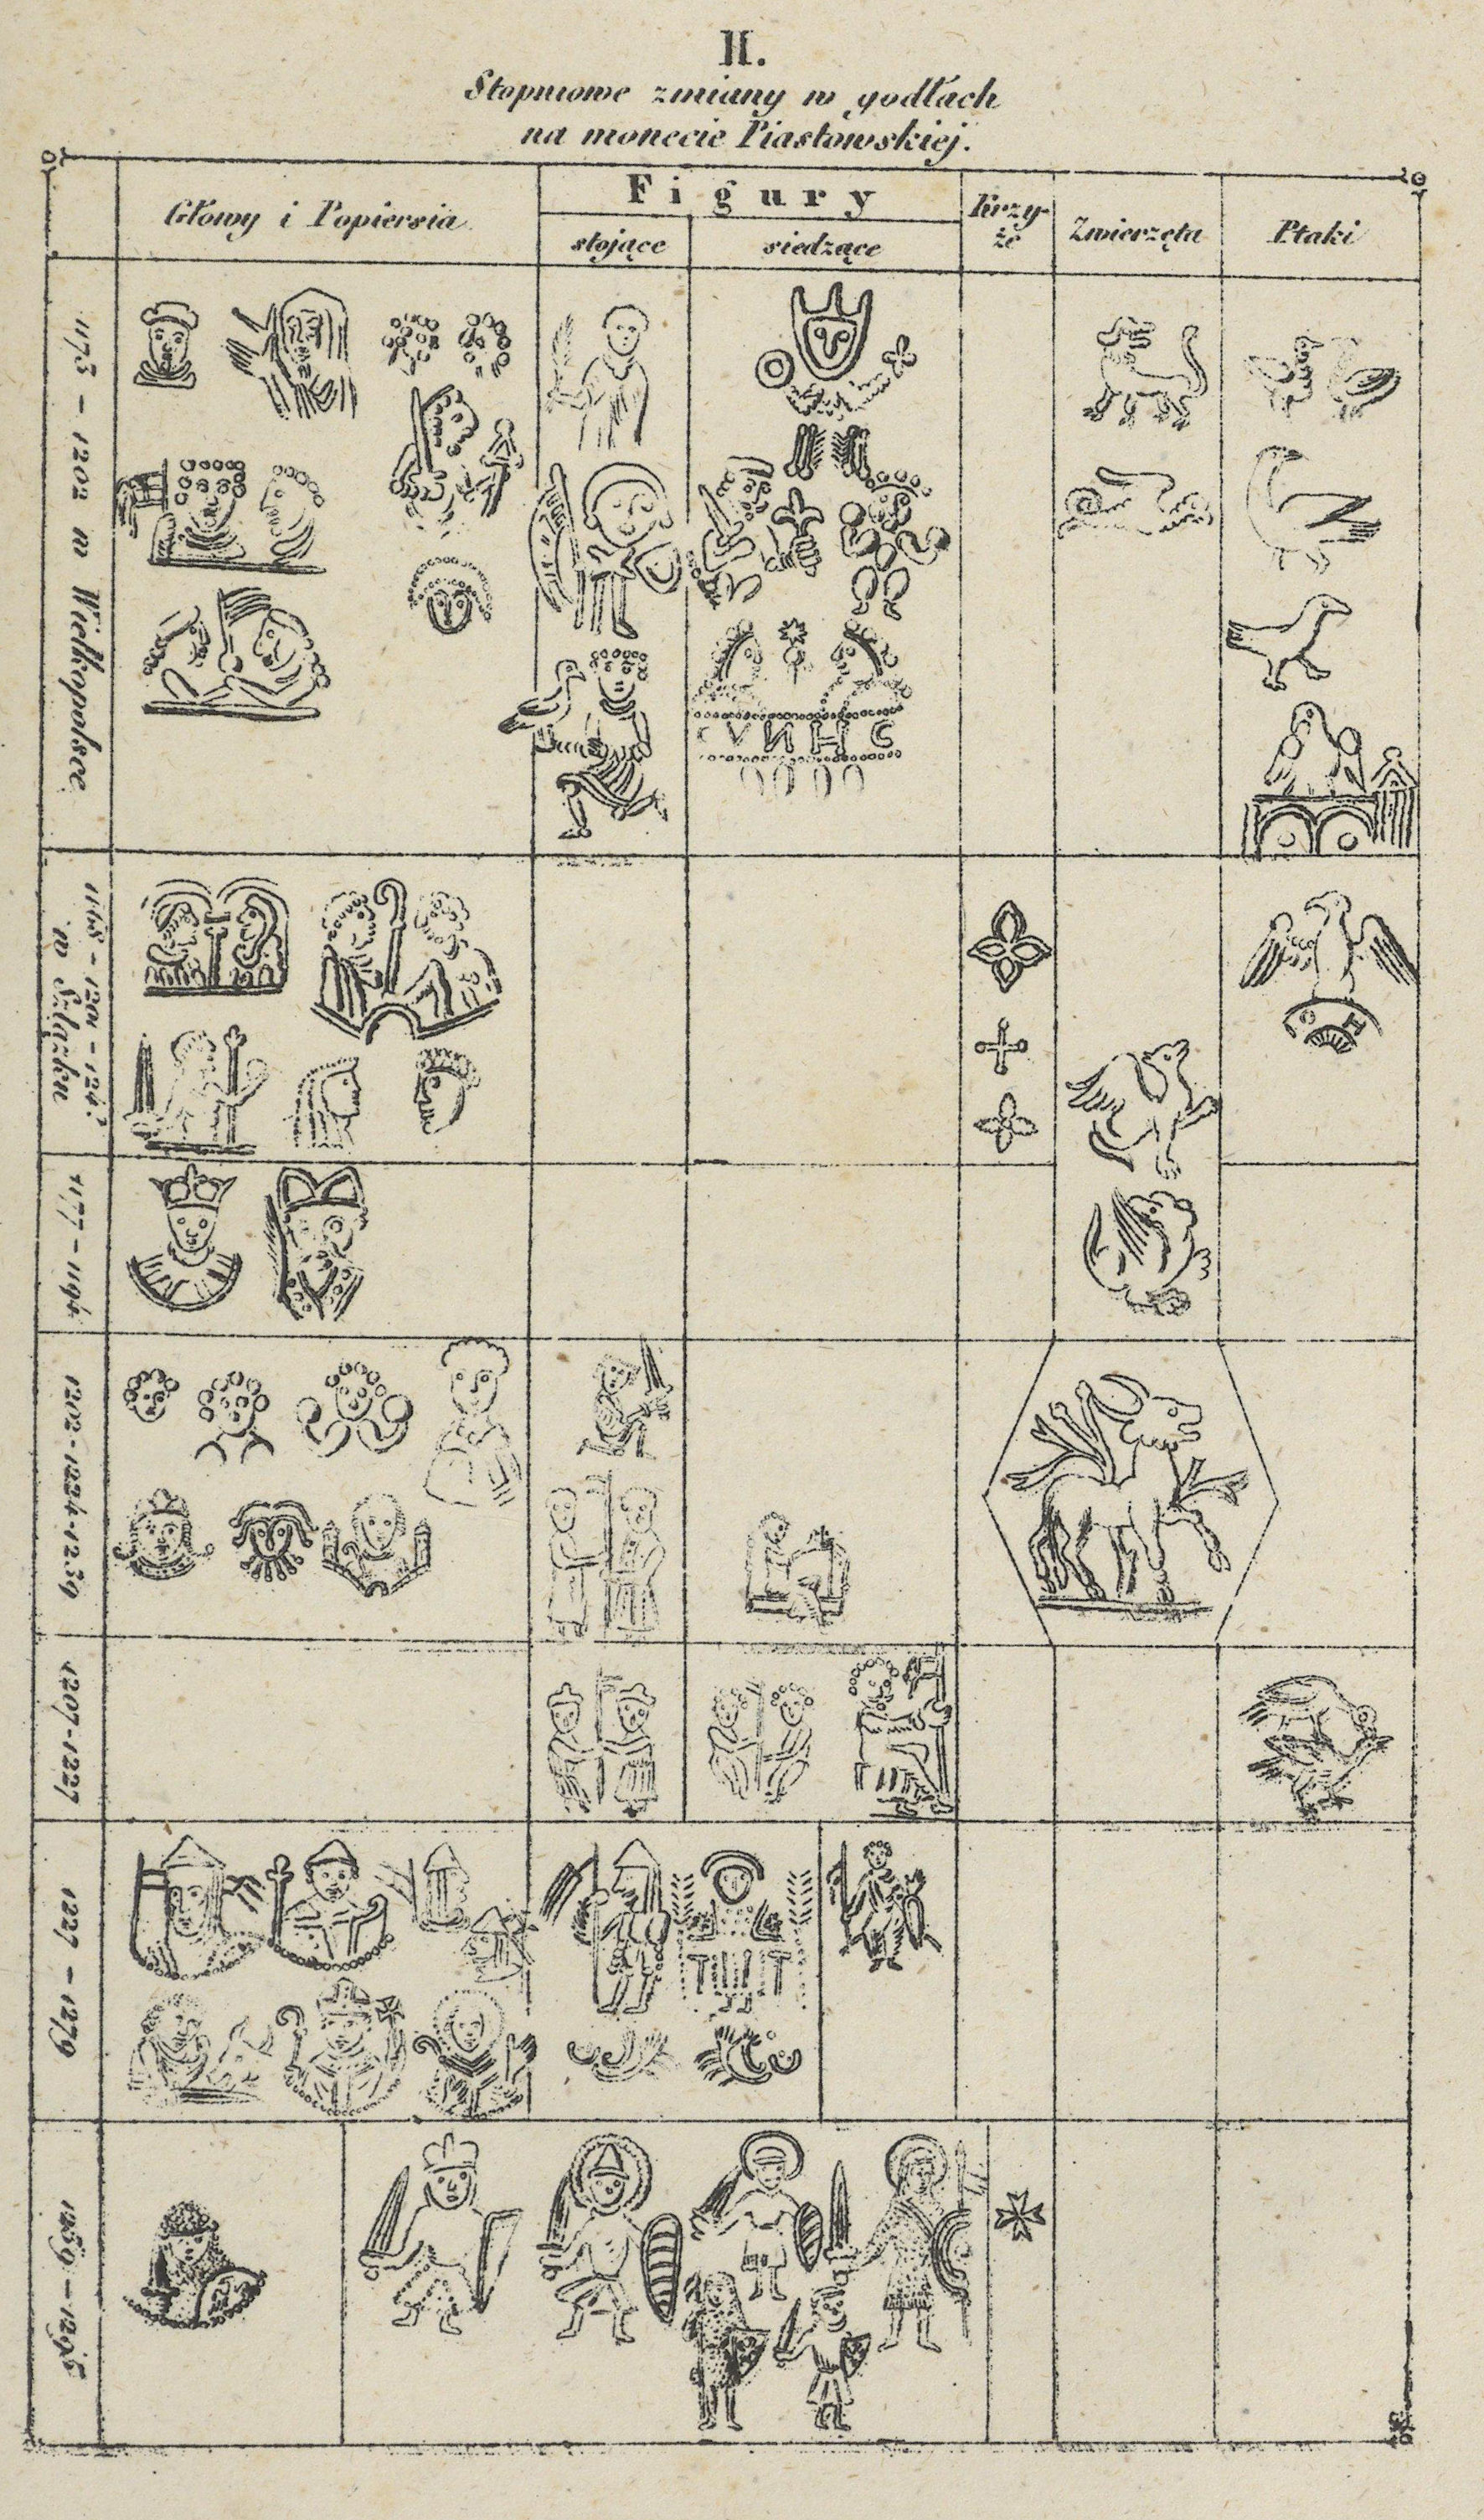 II.
Stopniowe zmiany w godłach
na monecie Piastowskiej.
Głowy i Popiersia
Figury
stojące
siedzące
Krzy-
że
Zwierzęta
Ptaki
1173 – 1202 w Wielkopolsce
CVИHC
w Szlązku
H
1177 – 1194
1202-1224-1239
1207-1227
1227 – 1279
1259 – 1295